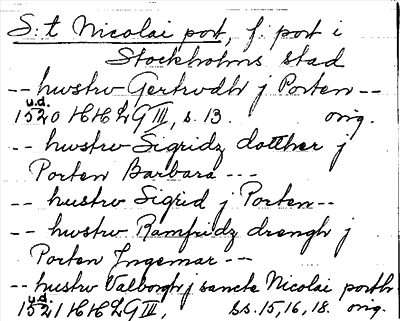 S:t Nicolai port, f. port i
Stockholms stad
-- hwstrv Gertrvdh j Porten --
u.d.
1520 HHLG III, s. 13. orig.
-- hwstrv Sigridz dotther j
Porten Barbara ---
-- hustrv Sigrid j Porten --
-- hwstrv Ramfridz drengh j
Porten Ingemar ---
-- hustrv Valborgh j sancte Nicolai porth
u.d.
1521 HHLG III, ss. 15, 16, 18. orig.